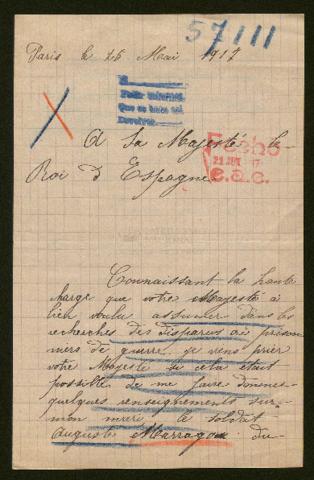 57111
Paris le 26 Mai 1917
Pedir informes
Que se hace así
Devolver
A Sa Majesté le
Roi d'Espagne
Fecho
21 JUN. 17
e.a.c.
Connaissant la haute
charge que votre Majesté à
bien voulu assumer dans les
recherches des disparus ou prison
niers de guerre, je viens prier
votre Majesté si cela était
possible de me faire donner
quelques renseignements sur
mon le soldat
Auguste Marragou du